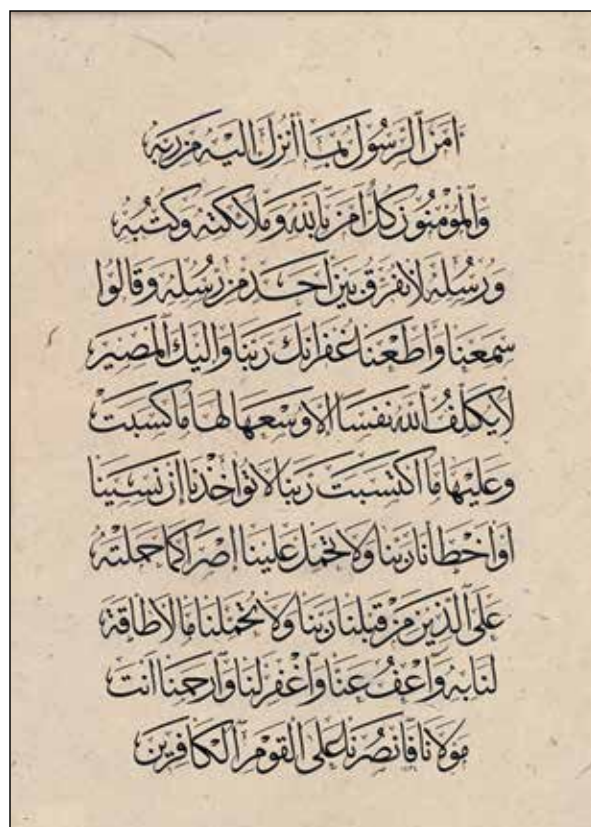 اٰمَنَ ٱلرَّسُولُ بِمَآ اُنْزِلَ اِلَيْهِ مِنْ رَبِّهِ
وَٱلْمُؤْمِنُونَ كُلٌّ اٰمَنَ بِٱللّٰهِ وَمَلَآئِكَتِهِ وَكُتُبِهِ
وَرُسُلِهِ لَا نُفَرِّقُ بَيْنَ اَحَدٍ مِنْ رُسُلِهِ وَقَالُوا
سَمِعْنَا وَاَطَعْنَا غُفْرَانَكَ رَبَّنَا وَاِلَيْكَ ٱلْمَصِيرُ
لَا يُكَلِّفُ ٱللّٰهُ نَفْسًا اِلَّا وُسْعَهَا لَهَا مَا كَسَبَتْ
وَعَلَيْهَا مَا ٱكْتَسَبَتْ رَبَّنَا لَا تُؤَاخِذْنَا اِنْ نَسِينَا
اَوْ اَخْطَاْنَا رَبَّنَا وَلَا تَحْمِلْ عَلَيْنَا اِصْرًا كَمَا حَمَلْتَهُ
عَلَى ٱلَّذِينَ مِنْ قَبْلِنَا رَبَّنَا وَلَا تُحَمِّلْنَا مَا لَا طَاقَةَ
لَنَا بِهِ وَٱعْفُ عَنَّا وَٱغْفِرْ لَنَا وَٱرْحَمْنَا اَنْتَ
مَوْلَانَا فَٱنْصُرْنَا عَلَى ٱلْقَوْمِ ٱلْكَافِرِينَ